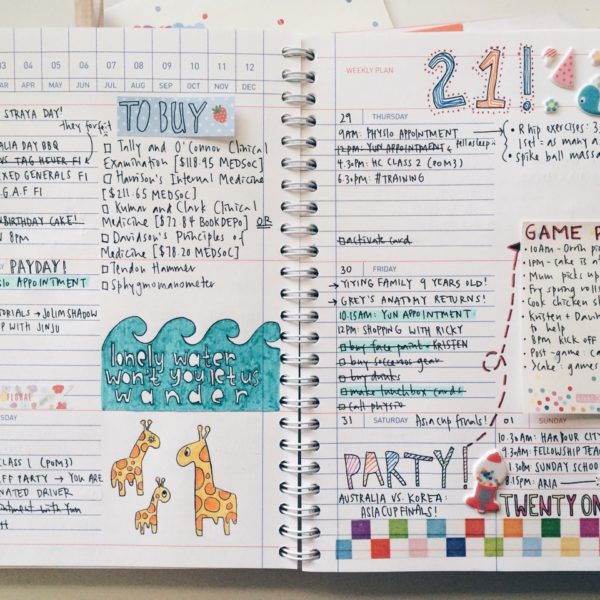 03 04 05 06 07 08 09 10 11 12
MAR APR MAY JUN JUL AUG SEP OCT NOV DEC
STRAYA DAY!
they forfeit
ALIA DAY BBQ
VS TAG HEUER FI &
XED GENERALS FI
.G.A.F FI
BIRTHDAY CAKE!
8PM
PAYDAY!
SIO APPOINTMENT
TORIALS → JOLIMSHADOW
UP WITH JINJU
FLORAL
TUESDAY
CLASS 1 (POM3)
FF PARTY → YOU ARE
NATED DRIVER
ointment with Yun
TO BUY
Tally and O'Connor Clinical
Examination [$118.95 MEDSOC]
Harrison's Internal Medicine
[$211.65 MEDSOC]
Kumar and Clark Clinical
Medicine [$72.84 BOOKDEPO] OR
Davidson's Principles of
Medicine [$78.20 MEDSOC]
Tendon Hammer
Sphygmomanometer
lonely water
won't you let us
wander
WEEKLY PLAN
21!
29 THURSDAY
9AM: PHYSIO APPOINTMENT
12PM: YUN APPOINTMENT fell asleep :(
4.30PM: HC CLASS 2 (POM3)
6.30PM: #TRAINING
activate card
R hip exercises: 3
1 set = as many a
spike ball massa
30 FRIDAY
→ YIYING FAMILY 9 YEARS OLD!
→ GREY'S ANATOMY RETURNS!
10.15AM: YUN APPOINTMENT
12PM: SHOPPING WITH RICKY
buy face paint - KRISTEN
buy socceroos gear
buy drinks
make lunchbox cards
call physio
GAME P
10AM - Orrth pi
1PM - cake is a
Mum picks up
Fry spring roll
Cook chicken s
Kristen + Davi
to help
8PM kick off
Post-game: ca
>cake: games
31 SATURDAY Asia cup finals!
PARTY!
AUSTRALIA VS. KOREA:
ASIA CUP FINALS!
01 SUNDAY
10.30AM: HARBOUR CITY
AM: FELLOWSHIP TEA
1.30PM: SUNDAY SCHOO
8.15PM: ARIA
TWENTY ON